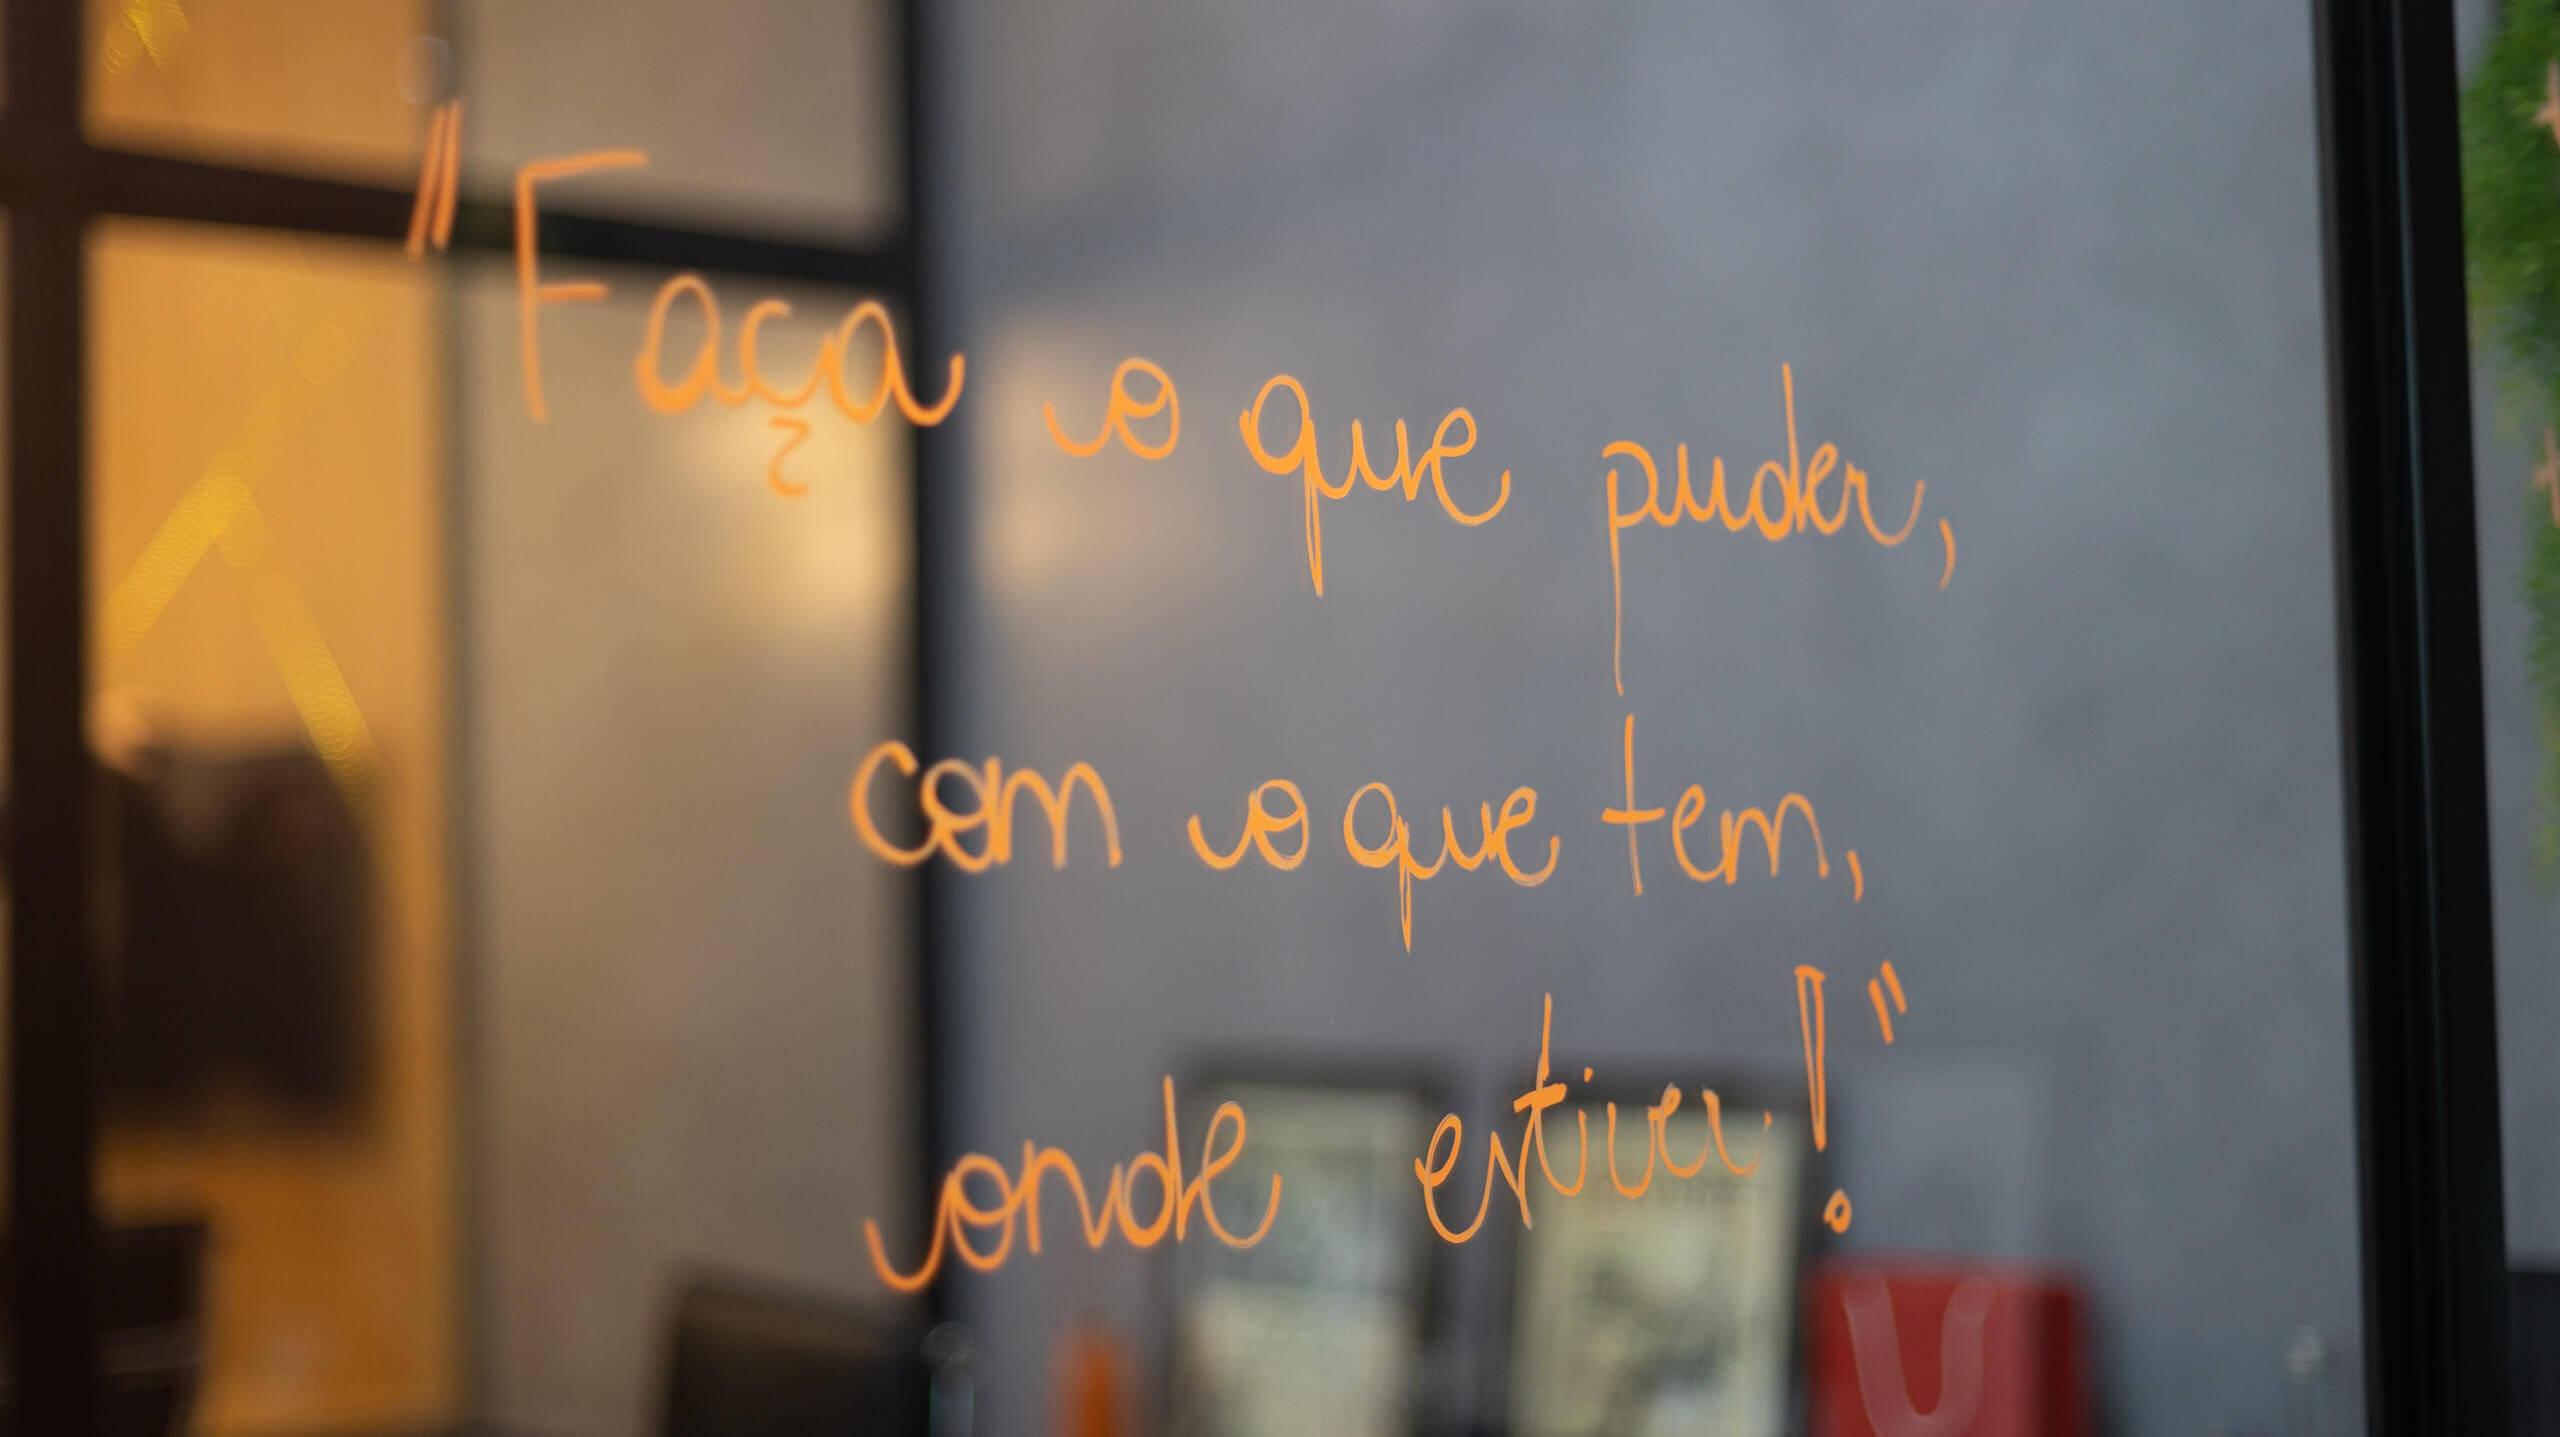 "Faça o que puder,
com o que tem,
onde estiver!"